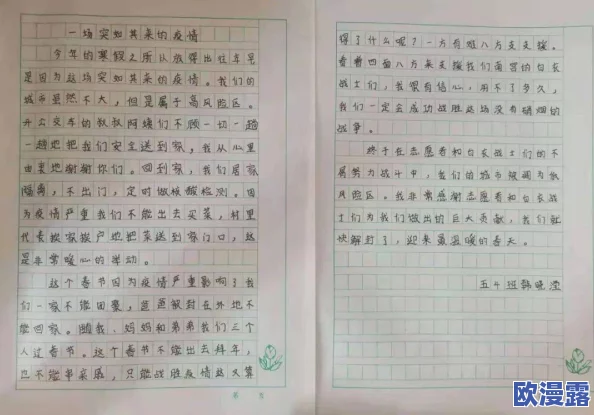 一场突如其来的疫情
今年的寒假之所以放得比往年早
是因为这场突如其来的疫情。我们的
城市虽然不大，但是属于高风险区。
开公交车的叔叔阿姨们不顾一切一趟
一趟地把我们安全送到家，我从心里
由衷地谢谢你们。回到家，我们居家
隔离，不出门，定时做核酸检测。因
为疫情严重我们不能出去买菜，村里
代表挨家挨户地把菜送到家门口，这
是非常暖心的举动。
这个春节因为疫情严重影响了我
们一家不能团聚，爸爸被封在外地不
能回家。随我、妈妈和弟弟我们三个
人过春节。这个春节不能出去拜年，
也不能串亲戚，只能战胜疫情这又算
得了什么呢？一方有难八方支支援。
看着四面八方来支援我们南宫的白衣
战士们，我很有信心，用不了多久，
我们一定会成功战胜这场没有硝烟的
战争。
终于在志愿者和白衣战士们的不
屑努力战斗中，我们的城市被调为低
风险区。我非常感谢志愿者和白衣战
士们为我们做出的巨大贡献，我们就
快解封了，迎来最温暖的春天。
五4班韩晓滢
欧漫露